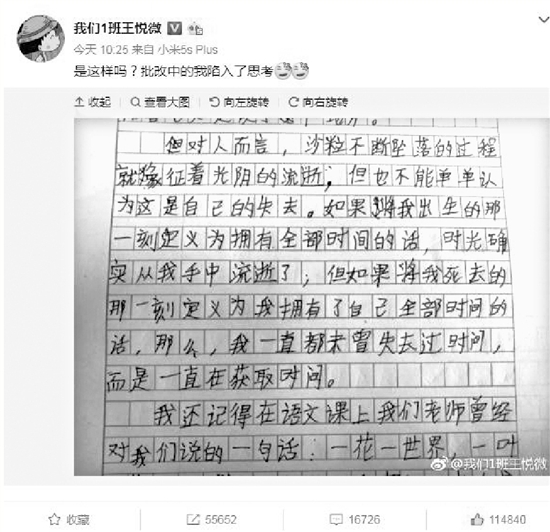 我们1班王悦微
今天 10:25 来自 小米5s Plus
是这样吗？批改中的我陷入了思考
收起 查看大图 向左旋转 向右旋转
但对人而言，沙粒不断坠落的过程
就像征着光阴的流逝；但也不能单单认
为这是自己的失去。如果将我出生的那
一刻定义为拥有全部时间的话，时光确
实从我手中流逝了；但如果将我死去的
那一刻定义为我拥有了自己全部时间的
话，那么，我一直都未曾失去过时间，
而是一直在获取时间。
我还记得在语文课上我们老师曾经
对我们说的一句话：一花一世界，一叶
@我们1班王悦微
收藏 55652 16726 114840